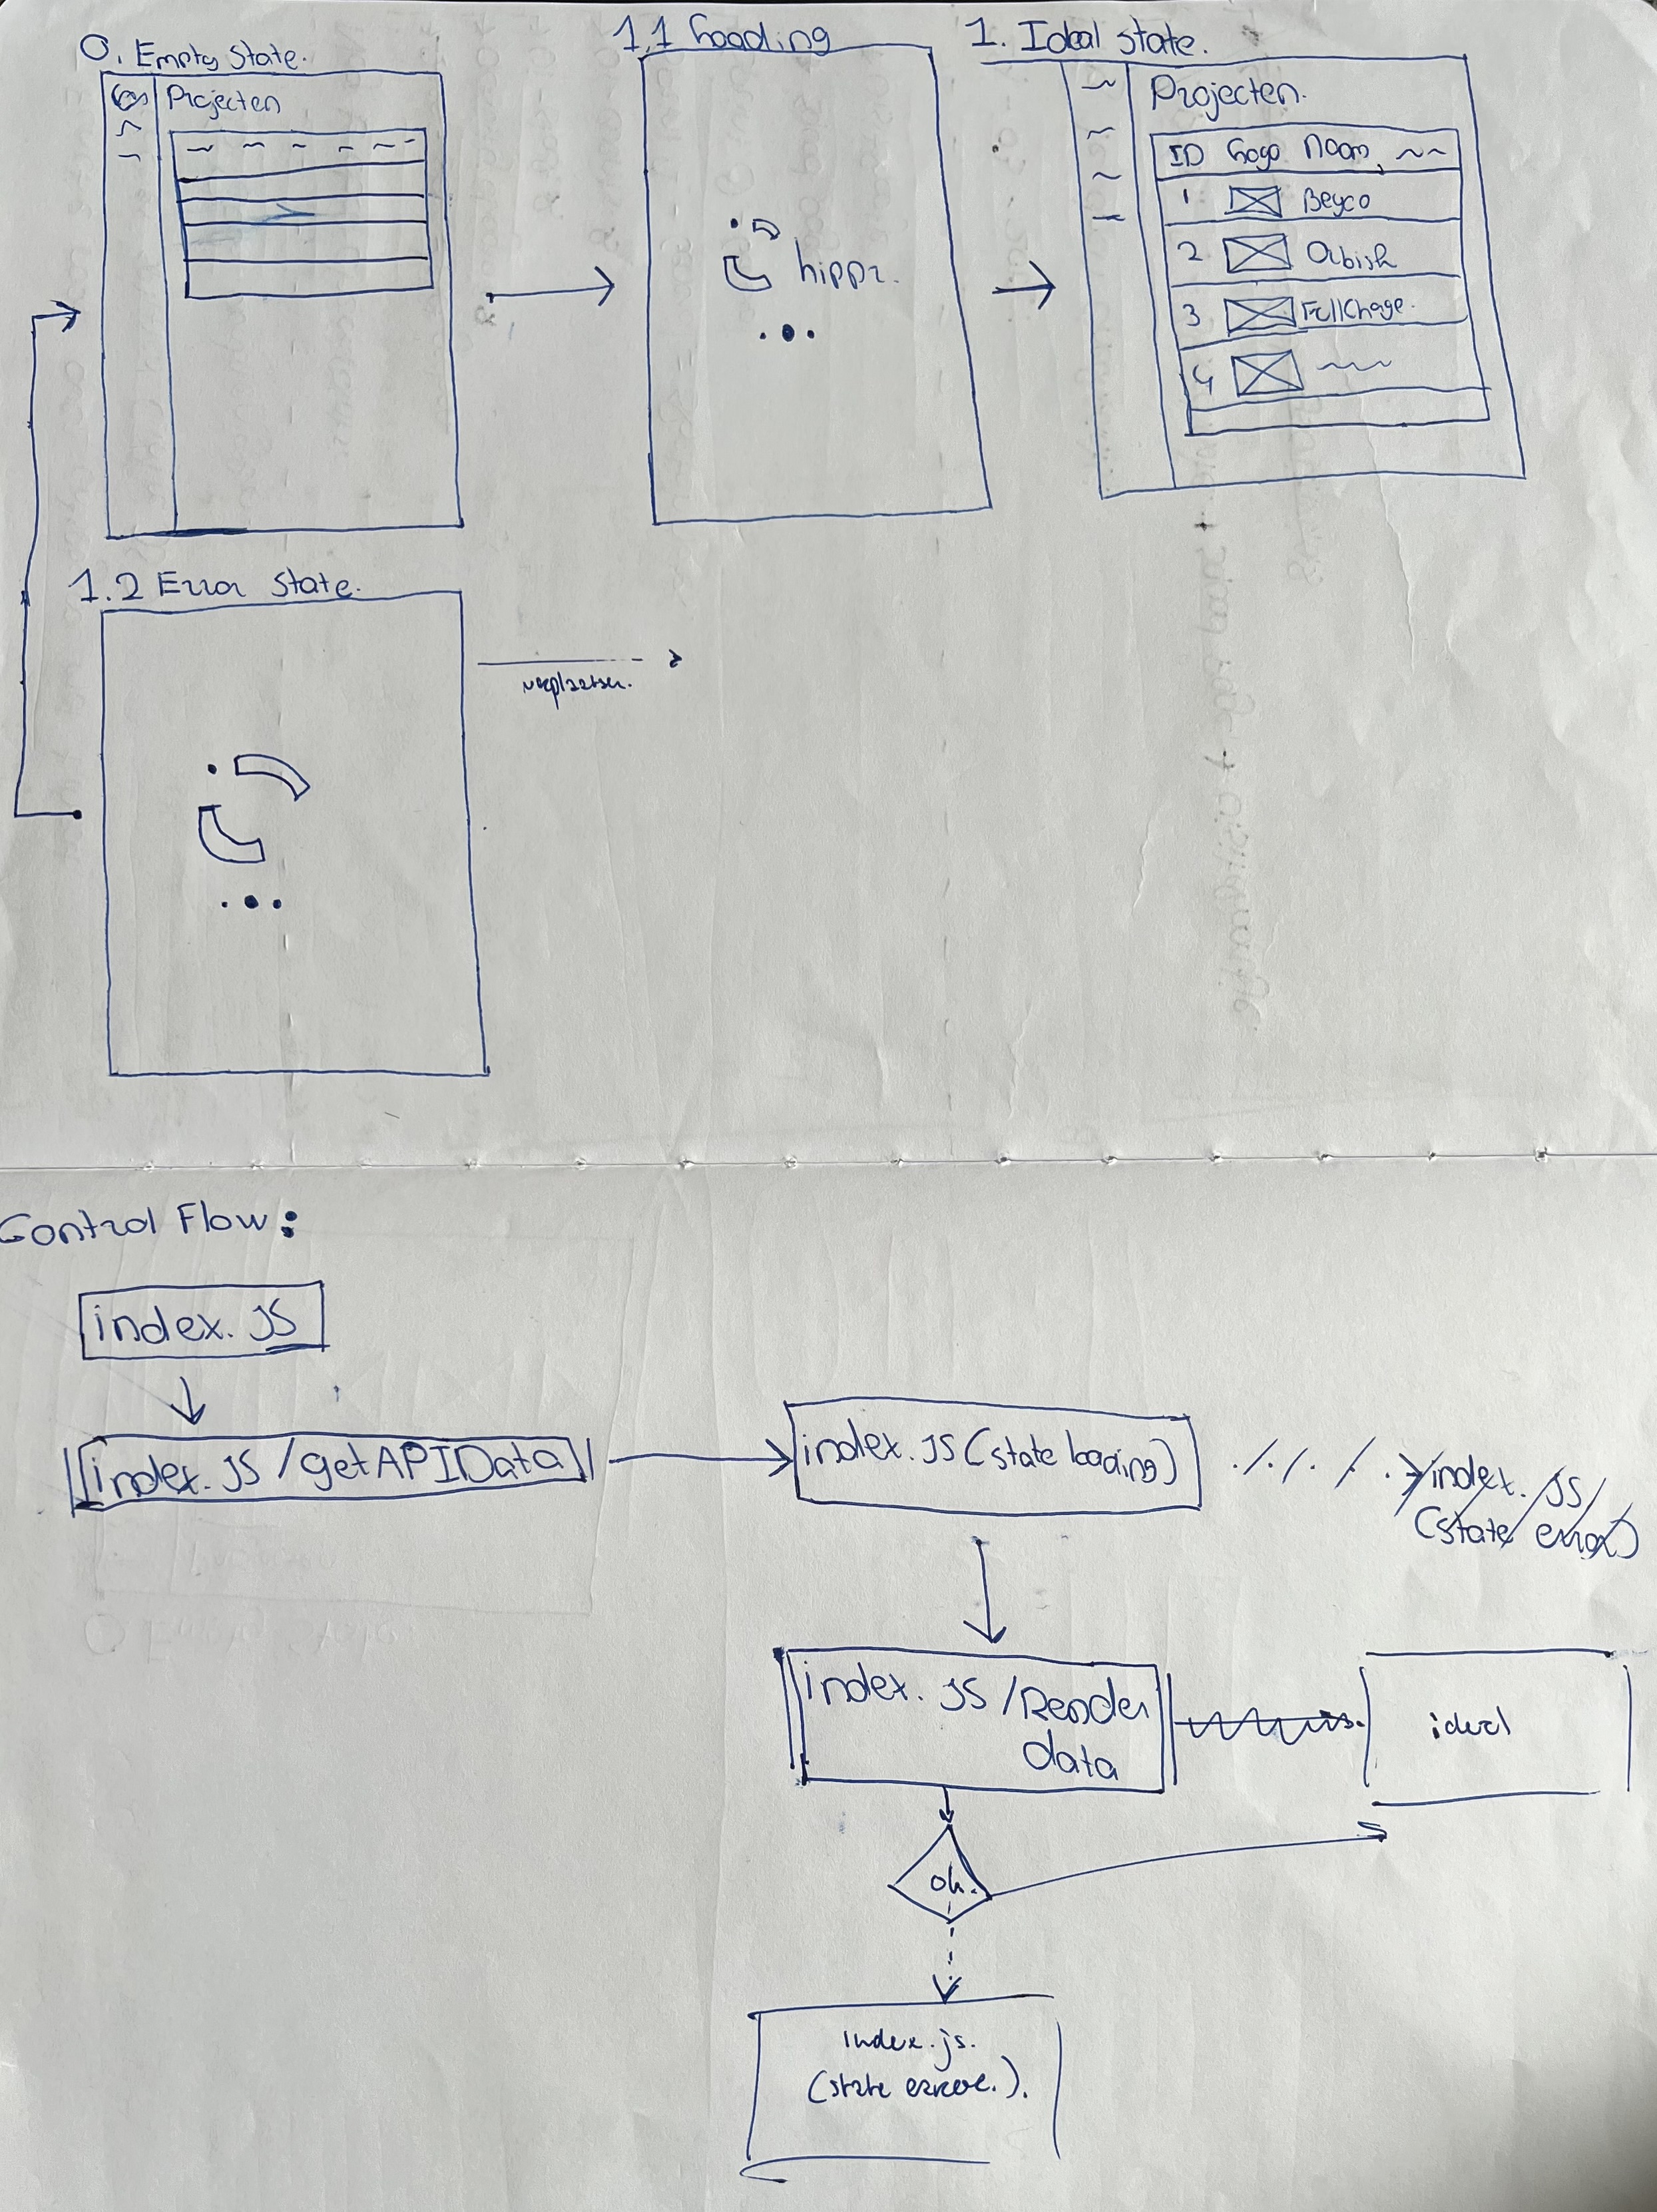 0. Empty State.
Projecten
1.1 Loading
hippr.
1. Ideal state.
Projecten.
ID Logo Naam,
1 Beyco
2 Orbish
3 FullChage.
4
1.2 Error State.
verplaatsen.
Control Flow:
index.JS
index.JS/getAPIData
index.JS (state loading)
index.JS
(state error)
index.JS/Render
data
ideal
ok.
index.js.
(state error.).